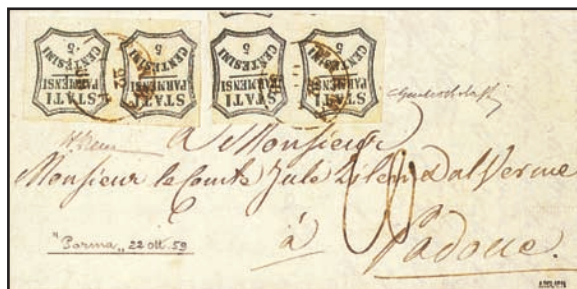 STATI
PARMENSI
CENTESIMI
5
STATI
PARMENSI
CENTESIMI
5
STATI
PARMENSI
CENTESIMI
5
STATI
PARMENSI
CENTESIMI
5
22
A Monsieur
Monsieur le Comte Jule Zileri dal Verme
à Padoue.
"Parma„ 22 ott. 59